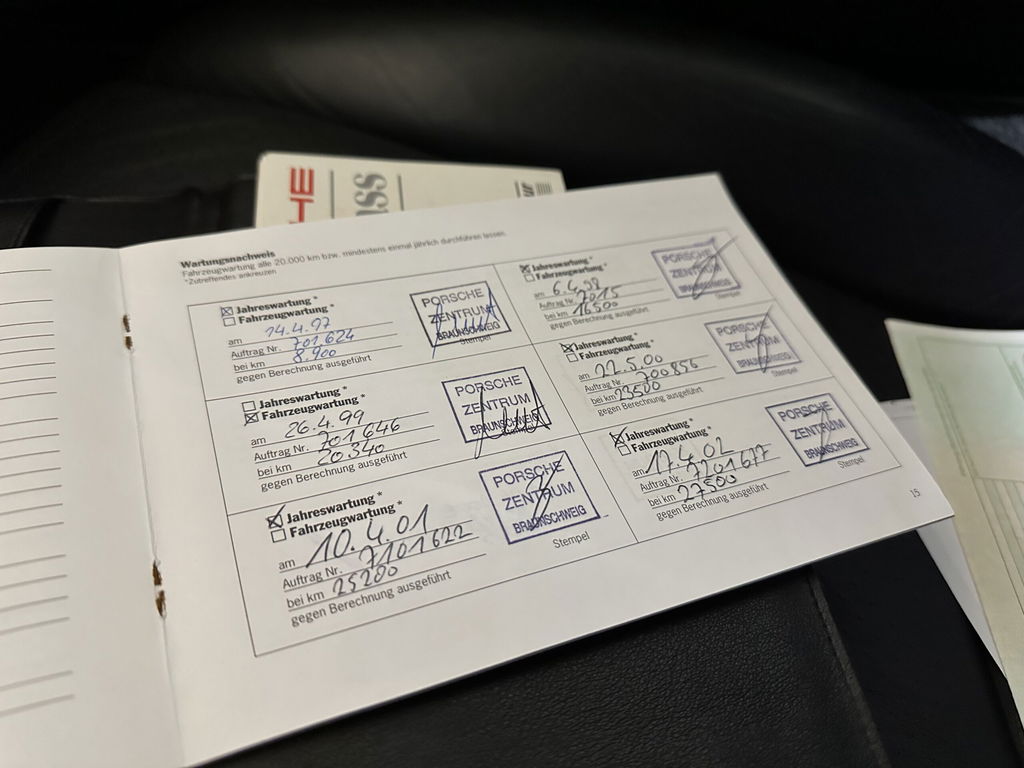 HE
ass
Wartungsnachweis
Fahrzeugwartung alle 20.000 km bzw. mindestens einmal jährlich durchführen lassen.
*Zutreffendes ankreuzen
Jahreswartung *
Fahrzeugwartung *
am 14.4.97
Auftrag Nr. 701624
bei km 8.900
gegen Berechnung ausgeführt
PORSCHE
ZENTRUM
BRAUNSCHWEIG
Stempel
Jahreswartung *
Fahrzeugwartung *
am 6.4.98
Auftrag Nr. 7015
bei km 16500
gegen Berechnung ausgeführt
PORSCHE
ZENTRUM
BRAUNSCHWEIG
Stempel
Jahreswartung *
Fahrzeugwartung *
am 26.4.99
Auftrag Nr. 701646
bei km 20340
gegen Berechnung ausgeführt
PORSCHE
ZENTRUM
BRAUNSCHWEIG
Stempel
Jahreswartung *
Fahrzeugwartung *
am 22.5.00
Auftrag Nr. 700856
bei km 23500
gegen Berechnung ausgeführt
PORSCHE
ZENTRUM
BRAUNSCHWEIG
Stempel
Jahreswartung *
Fahrzeugwartung *
am 10.4.01
Auftrag Nr. 7101622
bei km 25200
gegen Berechnung ausgeführt
PORSCHE
ZENTRUM
BRAUNSCHWEIG
Stempel
Jahreswartung *
Fahrzeugwartung *
am 17.4.02
Auftrag Nr. 7201677
bei km 27500
gegen Berechnung ausgeführt
PORSCHE
ZENTRUM
BRAUNSCHWEIG
Stempel
15